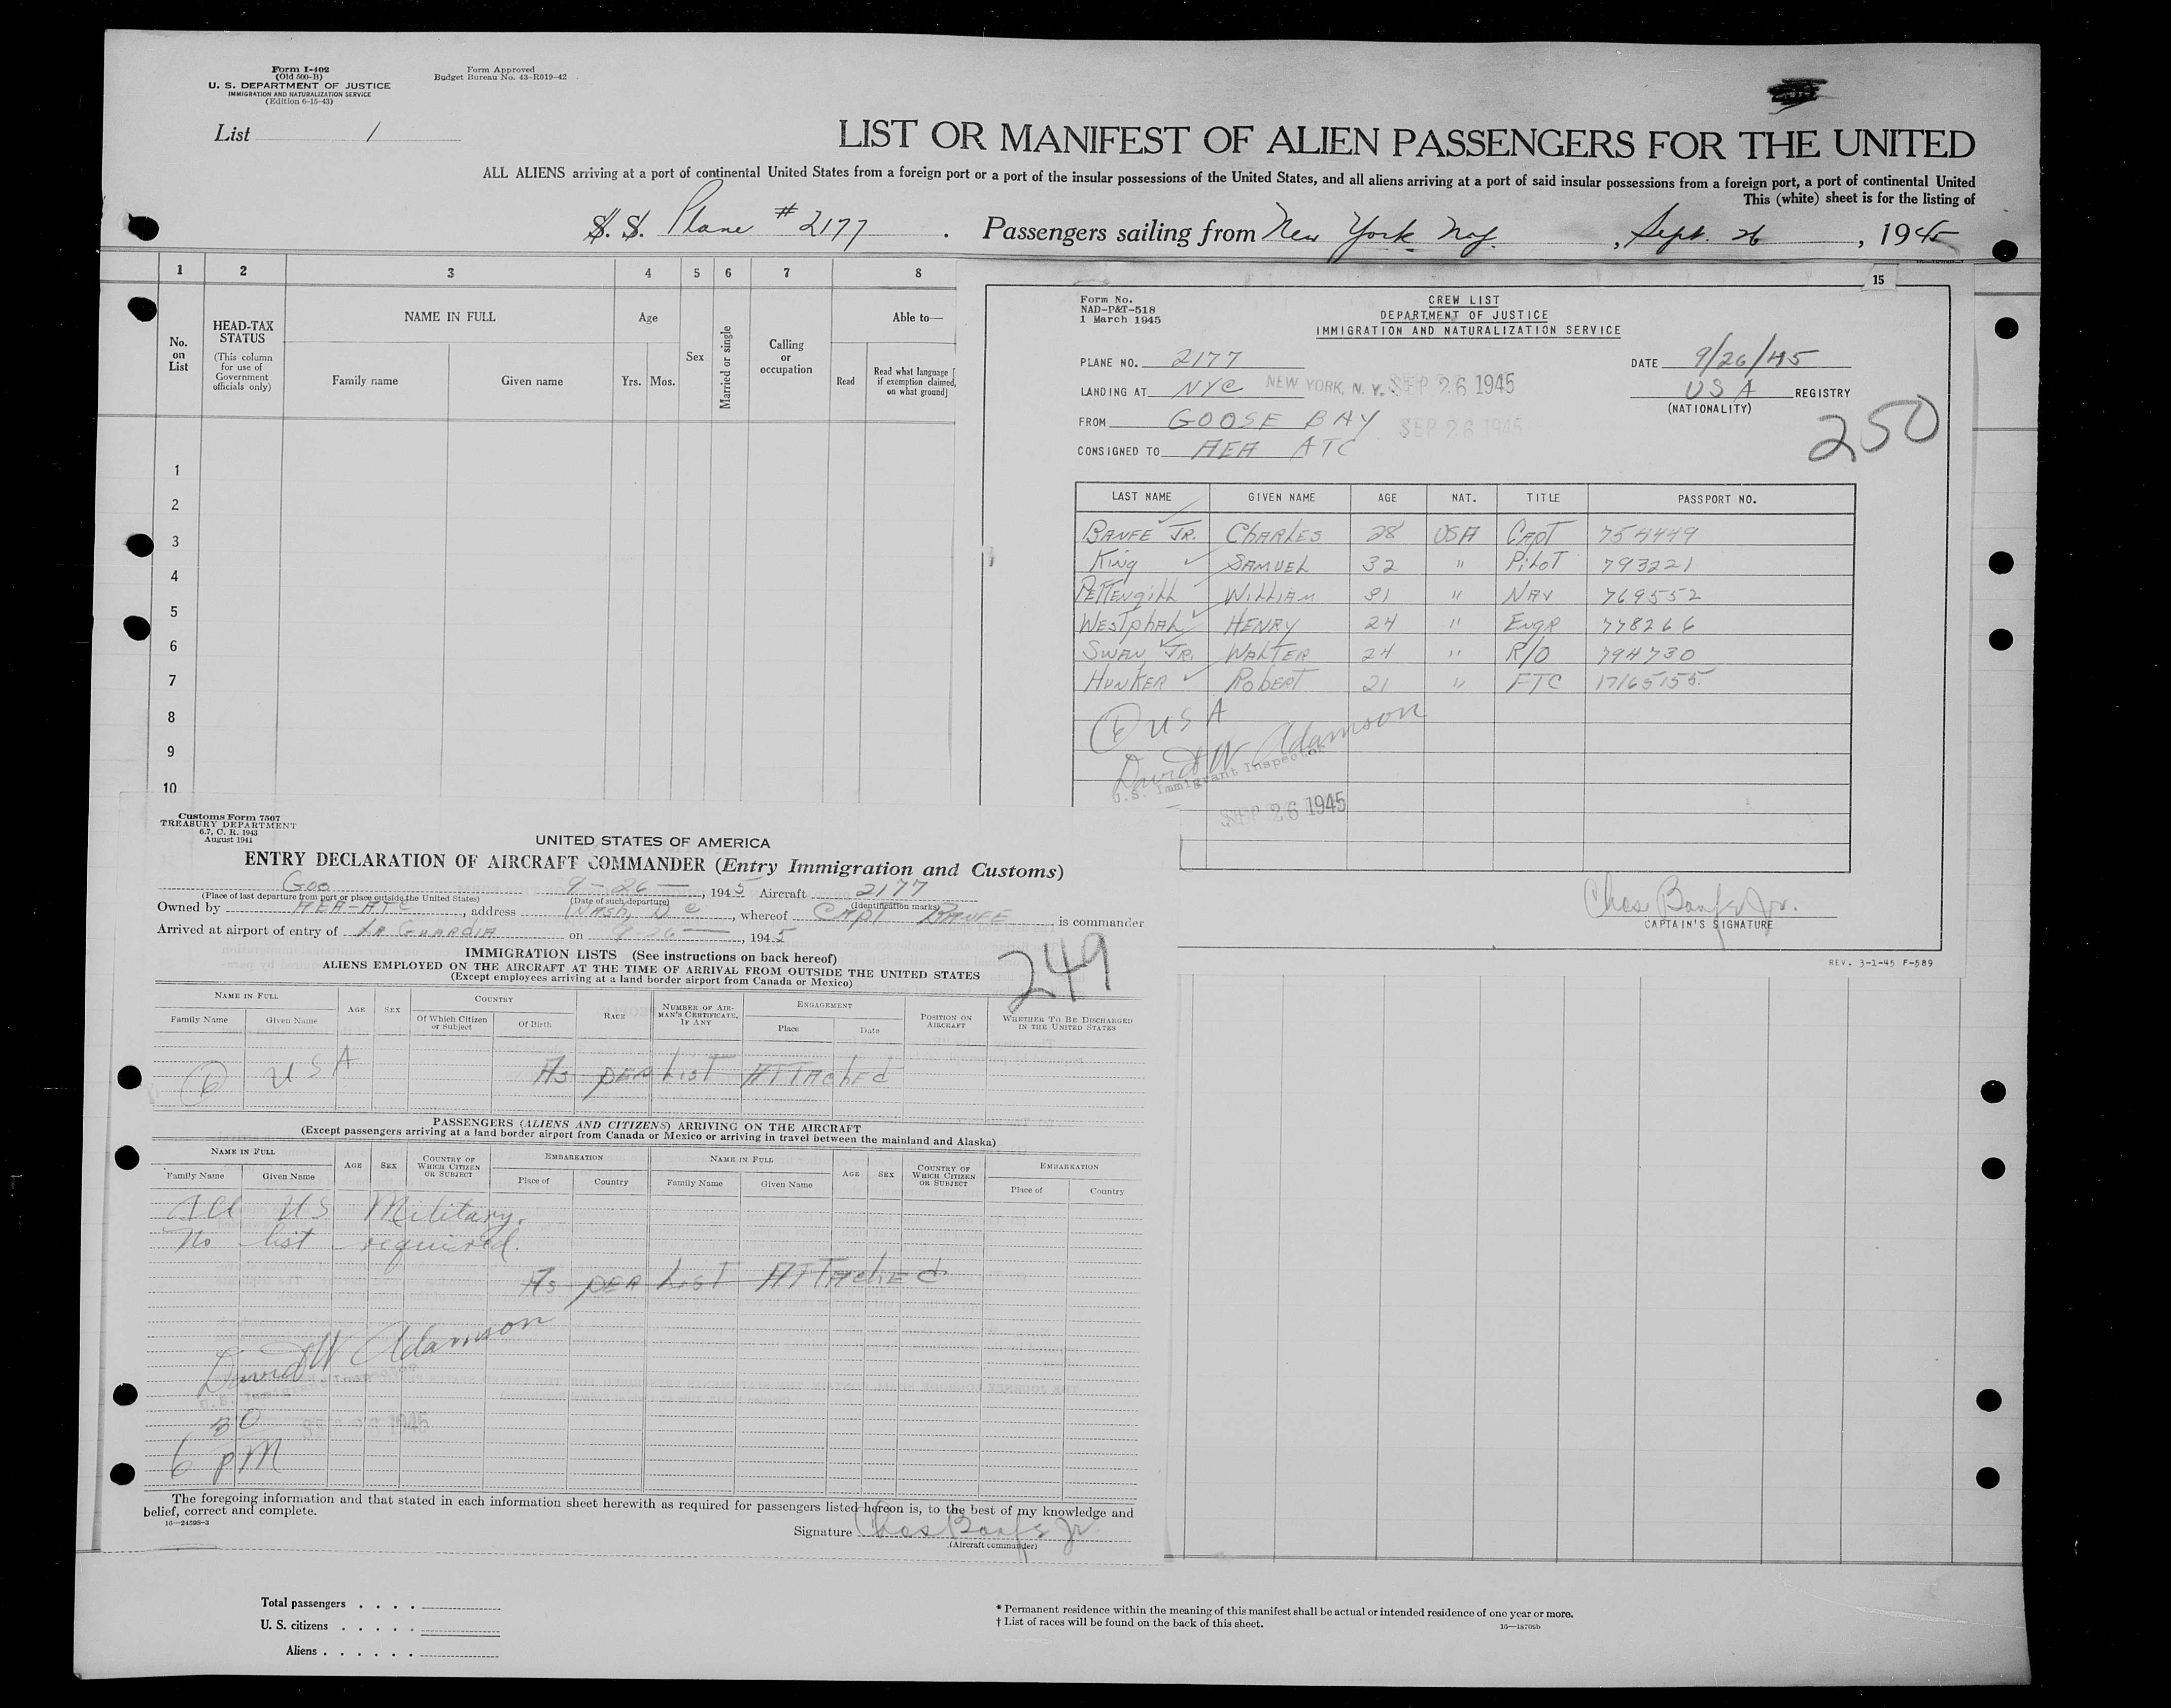 Form I-402
(Old 500-B)
U. S. DEPARTMENT OF JUSTICE
IMMIGRATION AND NATURALIZATION SERVICE
(Edition 6-15-43)
Form Approved
Budget Bureau No. 43-R019-42
List 1
LIST OR MANIFEST OF ALIEN PASSENGERS FOR THE UNITED
ALL ALIENS arriving at a port of continental United States from a foreign port or a port of the insular possessions of the United States, and all aliens arriving at a port of said insular possessions from a foreign port, a port of continental United
This (white) sheet is for the listing of
S. S. Plane # 2177 . Passengers sailing from New York N.Y. , Sept. 26 , 1945
1 2 3 4 5 6 7 8
No. on List
HEAD-TAX STATUS
(This column for use of Government officials only)
NAME IN FULL
Family name Given name
Age
Yrs. Mos.
Sex
Married or single
Calling or occupation
Able to—
Read
Read what language [if exemption claimed, on what ground]
1
2
3
4
5
6
7
8
9
10
15
Form No.
NAD-P&T-518
1 March 1945
CREW LIST
DEPARTMENT OF JUSTICE
IMMIGRATION AND NATURALIZATION SERVICE
PLANE NO. 2177 DATE 9/26/45
LANDING AT NYC NEW YORK, N. Y. SEP 26 1945 USA REGISTRY
(NATIONALITY)
FROM GOOSE BAY SEP 26 1945
250
CONSIGNED TO AEA ATC
LAST NAME GIVEN NAME AGE NAT. TITLE PASSPORT NO.
BANFE JR. CHARLES 28 USA CAPT 754449
KING SAMUEL 32 " PILOT 793221
PETTENGILL WILLIAM 31 " NAV 769552
WESTPHAL HENRY 24 " ENGR 778266
SWAN JR. WALTER 24 " R/O 794730
HUNKER ROBERT 21 " FTC 17165155
6 USA
David W Adamson
U.S. Immigrant Inspector
SEP 26 1945
Chas Banfe Jr.
CAPTAIN'S SIGNATURE
REV. 3-1-45 F-589
Customs Form 7507
TREASURY DEPARTMENT
6.7, C. R. 1943
August 1941
UNITED STATES OF AMERICA
ENTRY DECLARATION OF AIRCRAFT COMMANDER (Entry Immigration and Customs)
Goo 9-26- , 1945 Aircraft 2177
(Place of last departure from port or place outside the United States) (Date of such departure) (Identification marks)
Owned by AEA-ATC , address Wash, D C , whereof Capt BANFE is commander
Arrived at airport of entry of La Guardia on 9-26- , 1945
249
IMMIGRATION LISTS (See instructions on back hereof)
ALIENS EMPLOYED ON THE AIRCRAFT AT THE TIME OF ARRIVAL FROM OUTSIDE THE UNITED STATES
(Except employees arriving at a land border airport from Canada or Mexico)
NAME IN FULL
Family Name Given Name
AGE SEX
COUNTRY
Of Which Citizen or Subject Of Birth
RACE
NUMBER OF AIRMAN'S CERTIFICATE, IF ANY
ENGAGEMENT
Place Date
POSITION ON AIRCRAFT
WHETHER TO BE DISCHARGED IN THE UNITED STATES
6 USA As per List Attached
PASSENGERS (ALIENS AND CITIZENS) ARRIVING ON THE AIRCRAFT
(Except passengers arriving at a land border airport from Canada or Mexico or arriving in travel between the mainland and Alaska)
NAME IN FULL AGE SEX COUNTRY OF WHICH CITIZEN OR SUBJECT EMBARKATION NAME IN FULL AGE SEX COUNTRY OF WHICH CITIZEN OR SUBJECT EMBARKATION
Family Name Given Name Place of Country Family Name Given Name Place of Country
All US Military.
No list required.
As per List Attached
David W Adamson
30
6 PM
The foregoing information and that stated in each information sheet herewith as required for passengers listed hereon is, to the best of my knowledge and
belief, correct and complete.
16—24598-3
Signature Chas Banfe Jr
(Aircraft commander)
Total passengers . . . .
U. S. citizens . . . . .
Aliens . . . . . .
* Permanent residence within the meaning of this manifest shall be actual or intended residence of one year or more.
† List of races will be found on the back of this sheet.